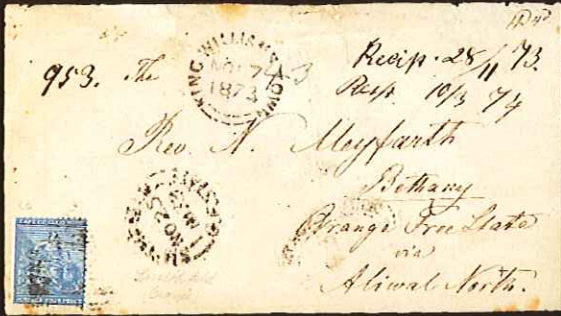 KING WILLIAMS TOWN
NO 7
1873
Recip. 28/11 73.
953. The
Resp. 10/3 74
Rev. N. Meyfarth
Bethany
Orange Free State
via
Aliwal North.
NO 25